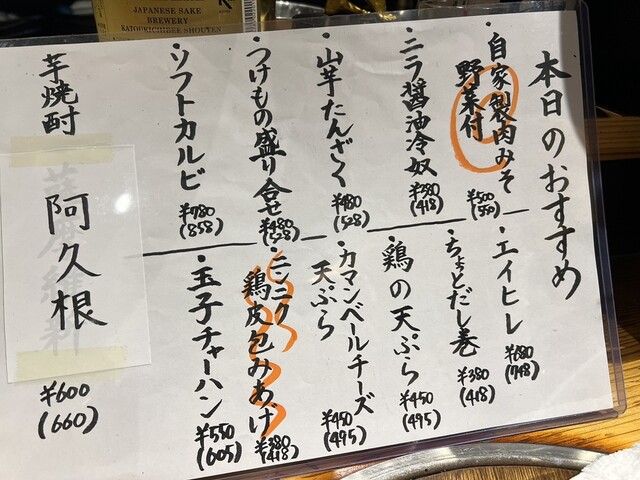 JAPANESE SAKE
BREWERY
KATOUKICHIBEE SHOUTEN
本日のおすすめ
・自家製肉みそ
野菜付
¥500
(550)
・ニラ醤油冷奴
¥380
(418)
・山芋たんざく
¥480
(528)
・つけもの盛り合せ
¥480
(528)
・ソフトカルビ
¥780
(858)
・エイヒレ
¥680
(748)
・ちょっとだし巻
¥380
(418)
・鶏の天ぷら
¥450
(495)
・カマンベールチーズ
天ぷら
¥450
(495)
・ニンニク
鶏皮包みあげ
¥380
(418)
・玉子チャーハン
¥550
(605)
芋焼酎
阿久根
¥600
(660)